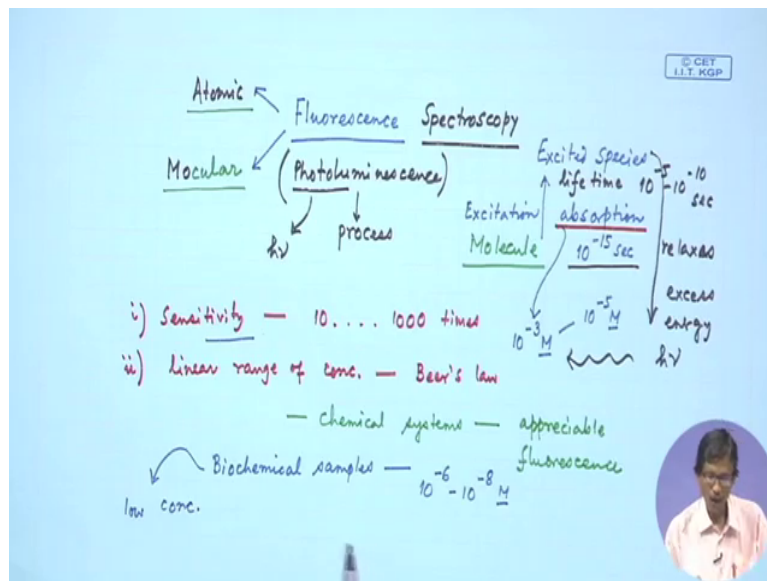 © CET
I.I.T. KGP
Atomic
Fluorescence Spectroscopy
Mocular
(Photoluminescence)
hν
process
Excited Species
life time 10⁻⁵-10⁻¹⁰ sec
Excitation
absorption
Molecule
10⁻¹⁵ sec
relaxes
excess
energy
hν
10⁻³ M
10⁻⁵ M
i) Sensitivity — 10 .... 1000 times
ii) linear range of conc. — Beer's law
— Chemical systems — appreciable
fluorescence
Biochemical samples — 10⁻⁶-10⁻⁸ M
low conc.